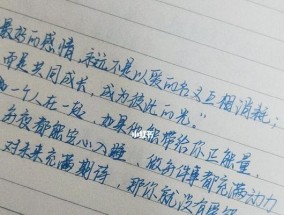 最好的感情,永远不是以爱的名义互相消耗;
而是共同成长,成为彼此的光。"
一个人在一段,如果他能带给你正能量,
夜都能安心入睡,做任何事都充满动力
对未来充满期待,那你就没有
小红书